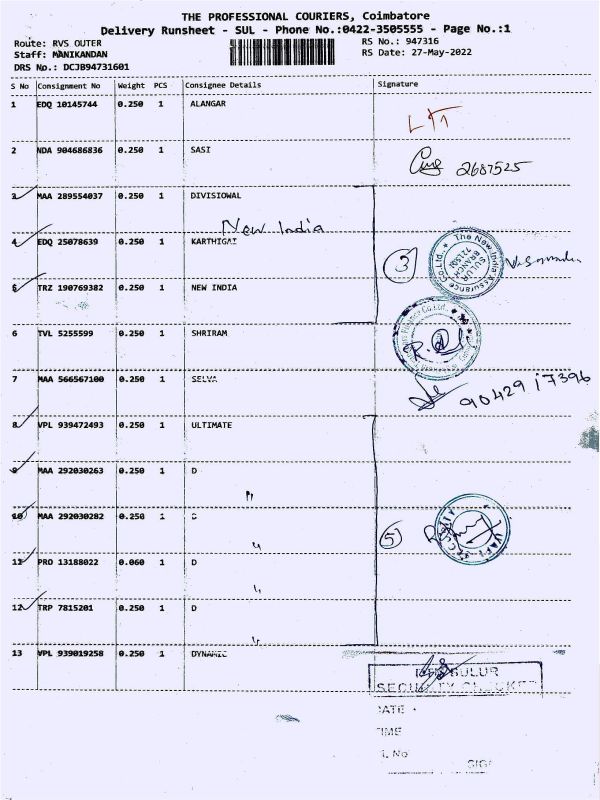 THE PROFESSIONAL COURIERS, Coimbatore
Delivery Runsheet - SUL - Phone No.:0422-3505555 - Page No.:1
Route: RVS OUTER
RS No.: 947316
Staff: MANIKANDAN
RS Date: 27-May-2022
DRS No.: DCJB94731601
S No Consignment No Weight PCS Consignee Details Signature
1 EDQ 10145744 0.250 1 ALANGAR
2 NDA 904686836 0.250 1 SASI
2687525
3 MAA 289554037 0.250 1 DIVISIOWAL
New India
4 EDQ 25078639 0.250 1 KARTHIGAI
3
The New India Assurance Co.Ltd.
SULUR
BRANCH
5 TRZ 190769382 0.250 1 NEW INDIA
6 TVL 5255599 0.250 1 SHRIRAM
7 MAA 566567100 0.250 1 SELVA
90429 17396
8 VPL 939472493 0.250 1 ULTIMATE
9 MAA 292030263 0.250 1 D
10 MAA 292030282 0.250 1
5
11 PRO 13188022 0.060 1 D
12 TRP 7815201 0.250 1 D
13 VPL 939019258 0.250 1 DYNAMIC
SULUR
SECURITY
DATE
TIME
No